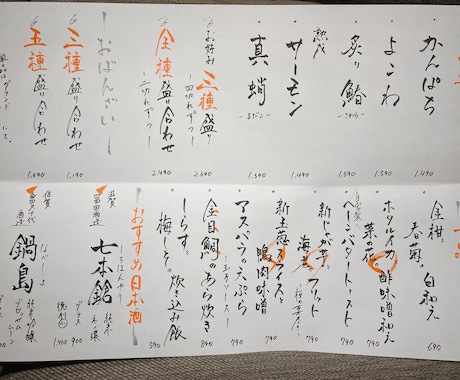 かんぱち
1,490
よこわ
1,590
炙り鰆
-さわら-
1,590
熟成
サーモン
1,490
真蛸
-まだこ-
1,390
お好み
三種盛り
-四切れずつ-
2,390
全種盛り合わせ
-二切れずつ-
2,490
-おばんざい-
三種盛り合わせ
1,190
五種盛り合わせ
1,690
金柑と
春菊の
白和え
690
ホタルイカと
菜の花の
酢味噌和え
790
自家製
ベーコンバタートースト
790
新じゃが芋と
海老の
フリット
790
新玉葱スライスと
鴨肉味噌
790
アスパラの天ぷら
790
金目鯛のあら炊き
840
しらすと
梅しその炊き込み飯
590
おすすめ日本酒
滋賀
冨田酒造
七本鎗
しちほんやり
純米
グラス
900
徳利
1,400
佐賀
富久千代
酒造
鍋島
なべしま
純米吟醸
ブロッサムムーン
グラス